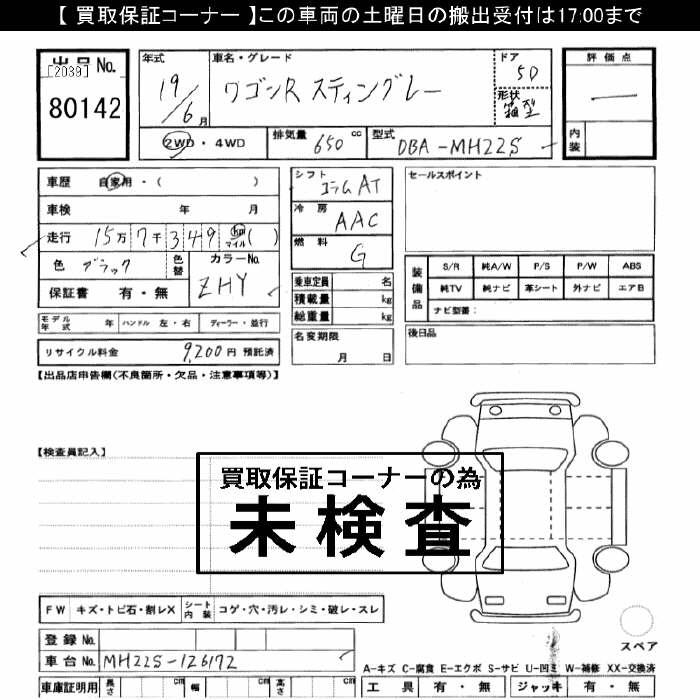 【 買取保証コーナー 】この車両の土曜日の搬出受付は17:00まで
出品No.
[2039]
80142
年式
19/6月
車名・グレード
ワゴンR スティングレー
ドア
5D
形状
箱型
評価点
—
内装
2WD・4WD
排気量 650 cc
型式 DBA-MH22S
車歴 自家用・( )
車検 年 月
走行 15万7千349 km マイル ( )
色 ブラック
色替
カラーNo.
ZHY
保証書 有・無
シフト
コラムAT
冷房
AAC
燃料
G
乗車定員 名
積載量 kg
総重量 kg
セールスポイント
装備品
S/R 純A/W P/S P/W ABS
純TV 純ナビ 革シート 外ナビ エアB
ナビ型番:
モデル年式 年 ハンドル 左・右 ディーラー・並行
リサイクル料金 9,200円 預託済
名変期限
月 日
後日品
【出品店申告欄(不良箇所・欠品・注意事項等)】
【検査員記入】
買取保証コーナーの為
未検査
FW キズ・トビ石・割レX シート内装 コゲ・穴・汚レ・シミ・破レ・スレ
登録No.
車台No. MH22S-126172
スペア
A-キズ C-腐食 E-エクボ S-サビ U-凹ミ W-補修 XX-交換済
車庫証明用 長さ cm 幅 cm 高さ cm
工具 有・無 ジャッキ 有・無